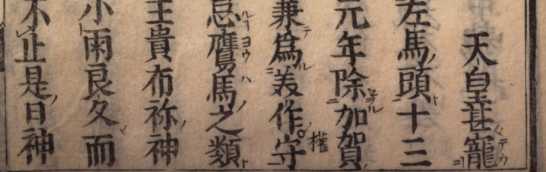 天皇甚寵
左馬頭十三
元年除加賀
兼爲美作守
鷹馬之類
貴布祢神
小雨良久而
不止是日神